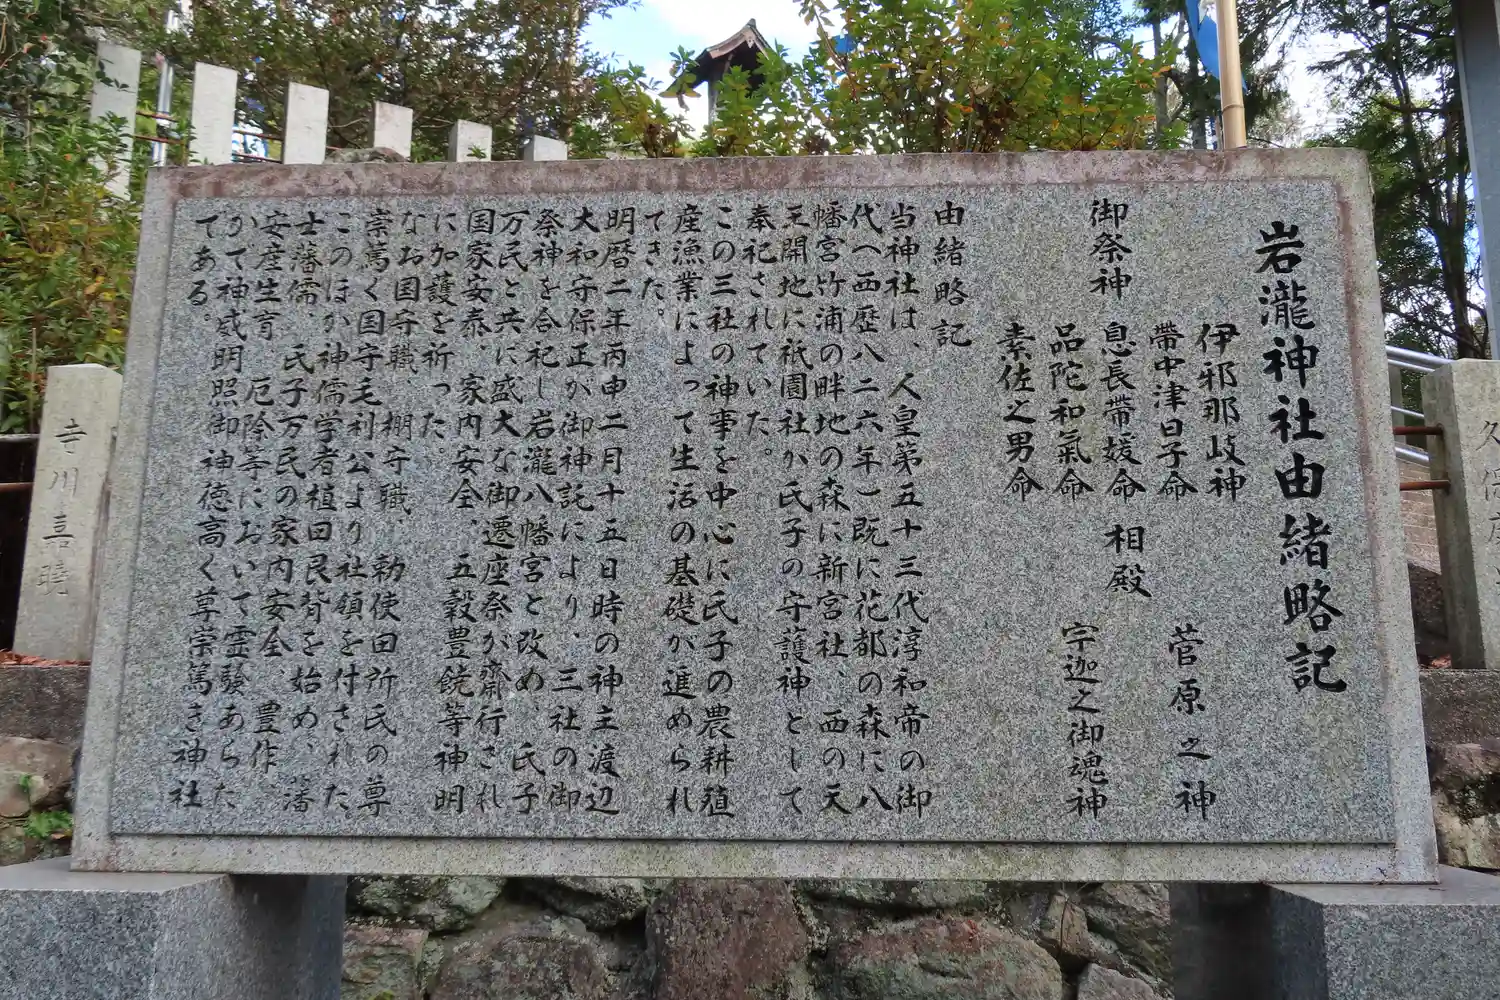 岩瀧神社由緒略記
御祭神
伊邪那岐神
帶中津日子命
息長帶媛命
品陀和氣命
素佐之男命
相殿
菅原之神
宇迦之御魂神
由緒略記
当神社は、人皇第五十三代淳和帝の御
代へ西歴八二六年)既に花都の森に八
幡宮竹浦の畔地の森に新宮社、西の天
王開地に祇園社か氏子の守護神として
奉祀されていた。
この三社の神事を中心に氏子の農耕殖
産漁業によって生活の基礎が進められ
てきた。
明暦二年丙申二月十五日時の神主渡辺
大和守保正が御神託により、三社の御
祭神を合祀し岩瀧八幡宮と改め、氏子
万民と共に盛大な御遷座祭が齋行され
国家安泰、家内安全、五穀豊饒等神明
に加護を祈った。
なお国守職、棚守職、勅使田所氏の尊
崇篤く国守毛利公より社領を付された
このほか神儒学者植田艮背を始め、藩
士藩儒、氏子万民の家内安全、豊作、
安産生育、厄除等において霊験あらた
かで神威明照御神徳高く尊崇篤き神社
である。
寺川喜暁